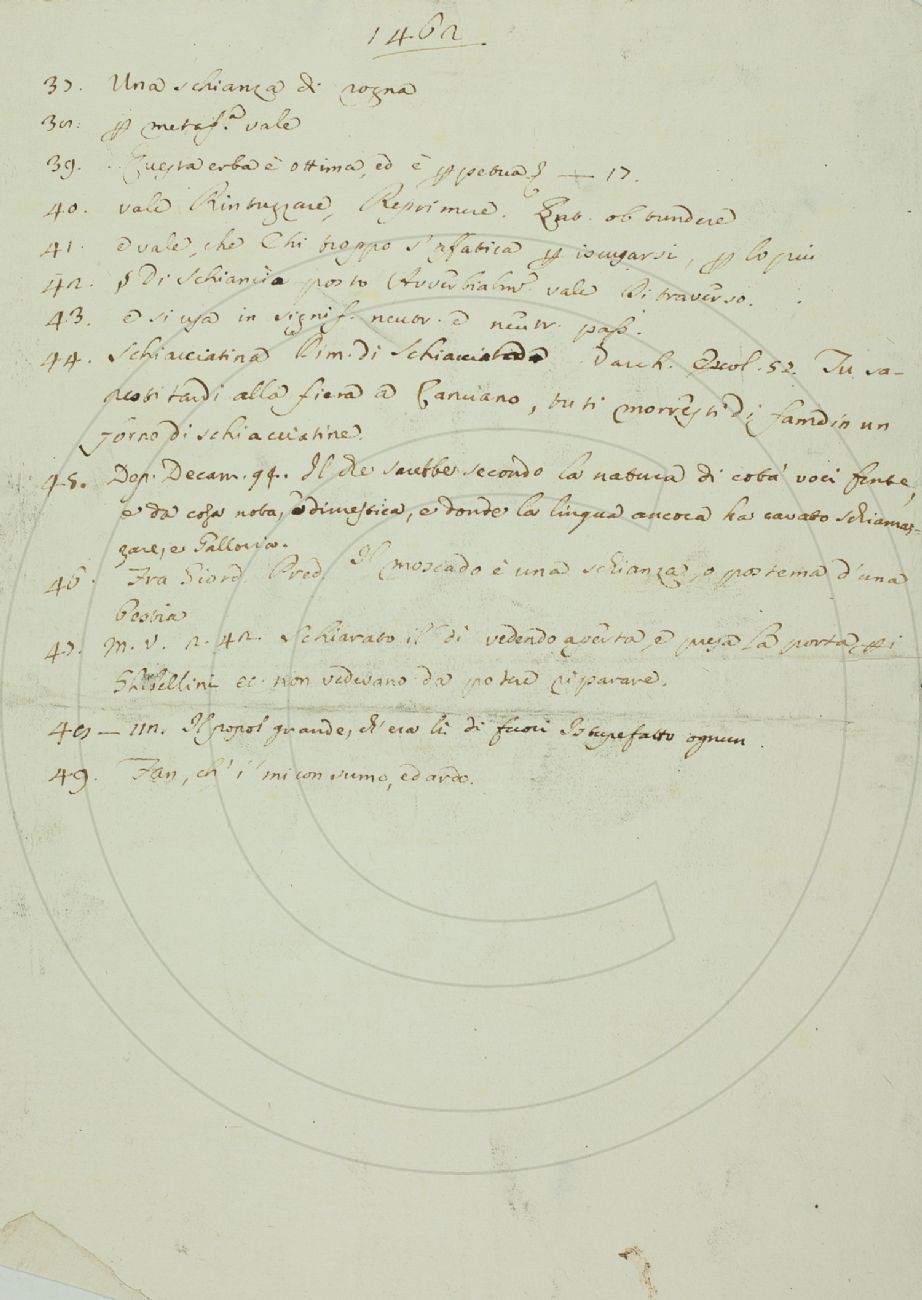 1462
37. Una schianza di rogna
38. p metaf.a vale
39. Questa erba è ottima, ed è ppetua — 17.
40. vale Rintuzzare, Reprimere. Lat. obtundere
41. e vale, che Chi troppo s'affatica p iscusarsi, p lo più
42. § Di Schiancìo posto Avverbialm. vale Di traverso.
43. e si usa in signif. neutr. e neutr. pass.
44. Schiacciatina Dim. di Schiacciata Varch. Ercol. 52. Tu sa-
resti tardi alla fiera a Lanciano, tu ti morresti di fame in un
forno di schiacciatine.
45. Dep. Decam. 94. Il che sarebbe secondo la natura di cotai voci finte,
e da cosa nota, e dimestica, e donde la lingua ancora ha cavato schiamaz-
zare, e Galloria.
46. Fra Giord. Pred. Il moscado è una schianza, o postema d'una
bestia
47. M. V. 2. 42. Schiarato il dì vedendo aperta, e presa la porta, pi
Ghibellini ec. non vedevano da potere riparare.
48 — Il popol grande, ch'era lì di fuori Istupefatto ognun
49. Fan, ch'i' mi consumo, ed ardo.